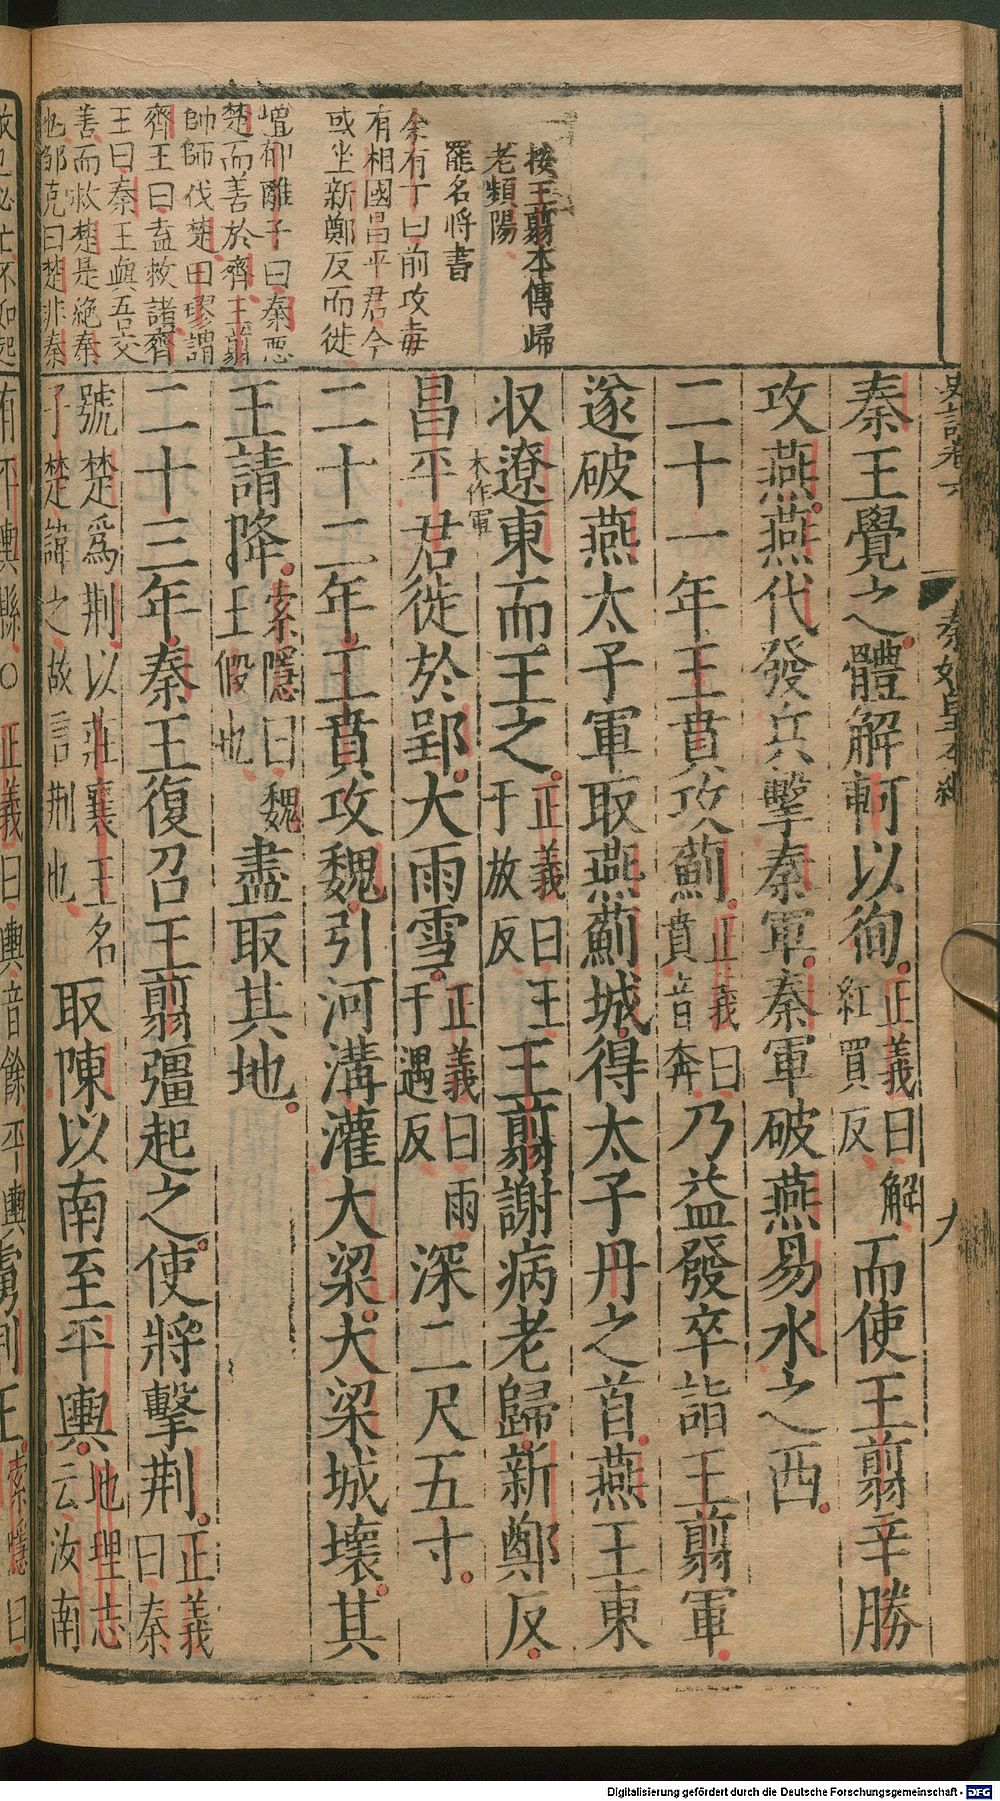 史記卷六
秦始皇本紀
九
秦王覺之體解軻以徇正義曰解紅買反而使王翦辛勝
攻燕燕代發兵擊秦軍秦軍破燕易水之西
二十一年王賁攻薊正義曰賁音奔乃益發卒詣王翦軍
遂破燕太子軍取燕薊城得太子丹之首燕王東
収遼東而王之正義曰王于放反王翦謝病老歸新鄭反
昌平君徙於郢大雨雪正義曰雨于遇反深二尺五寸
二十二年王賁攻魏引河溝灌大梁大梁城壞其
王請降索隱曰魏王假也盡取其地
二十三年秦王復召王翦彊起之使將擊荆正義曰秦
號楚爲荆以莊襄王名子楚諱之故言荆也取陳以南至平輿地理志云汝南
有平輿縣○正義曰輿音餘平輿
索隱曰
按王翦本傳歸
老頻陽
罷名將書
余有丁曰前攻毐
有相國昌平君今
或坐新鄭反而徙
離子曰秦惡
楚而善於齊王翦
帥師伐楚田璆謂
齊王曰盍救諸齊
王曰秦王與吾交
善而救楚是絶秦
也鄒克曰楚非秦
本作軍
Digitalisierung gefördert durch die Deutsche Forschungsgemeinschaft - DFG